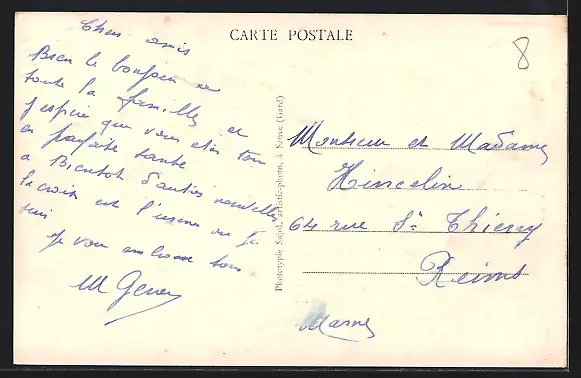 CARTE POSTALE
8
Chers amis
Bien le bonjour a
toute la familles et
j'espère que vous etes tous
en parfaite santé
a Bientot d'autres nouvelles
la croix est l'usine ou je
suis
Je vous embrasse tous
M
Phototypie Sujol, artiste-photo, à Sauve (Gard)
Monsieur et Madame
Hincelin
64 rue St Thierry
Reims
Marne